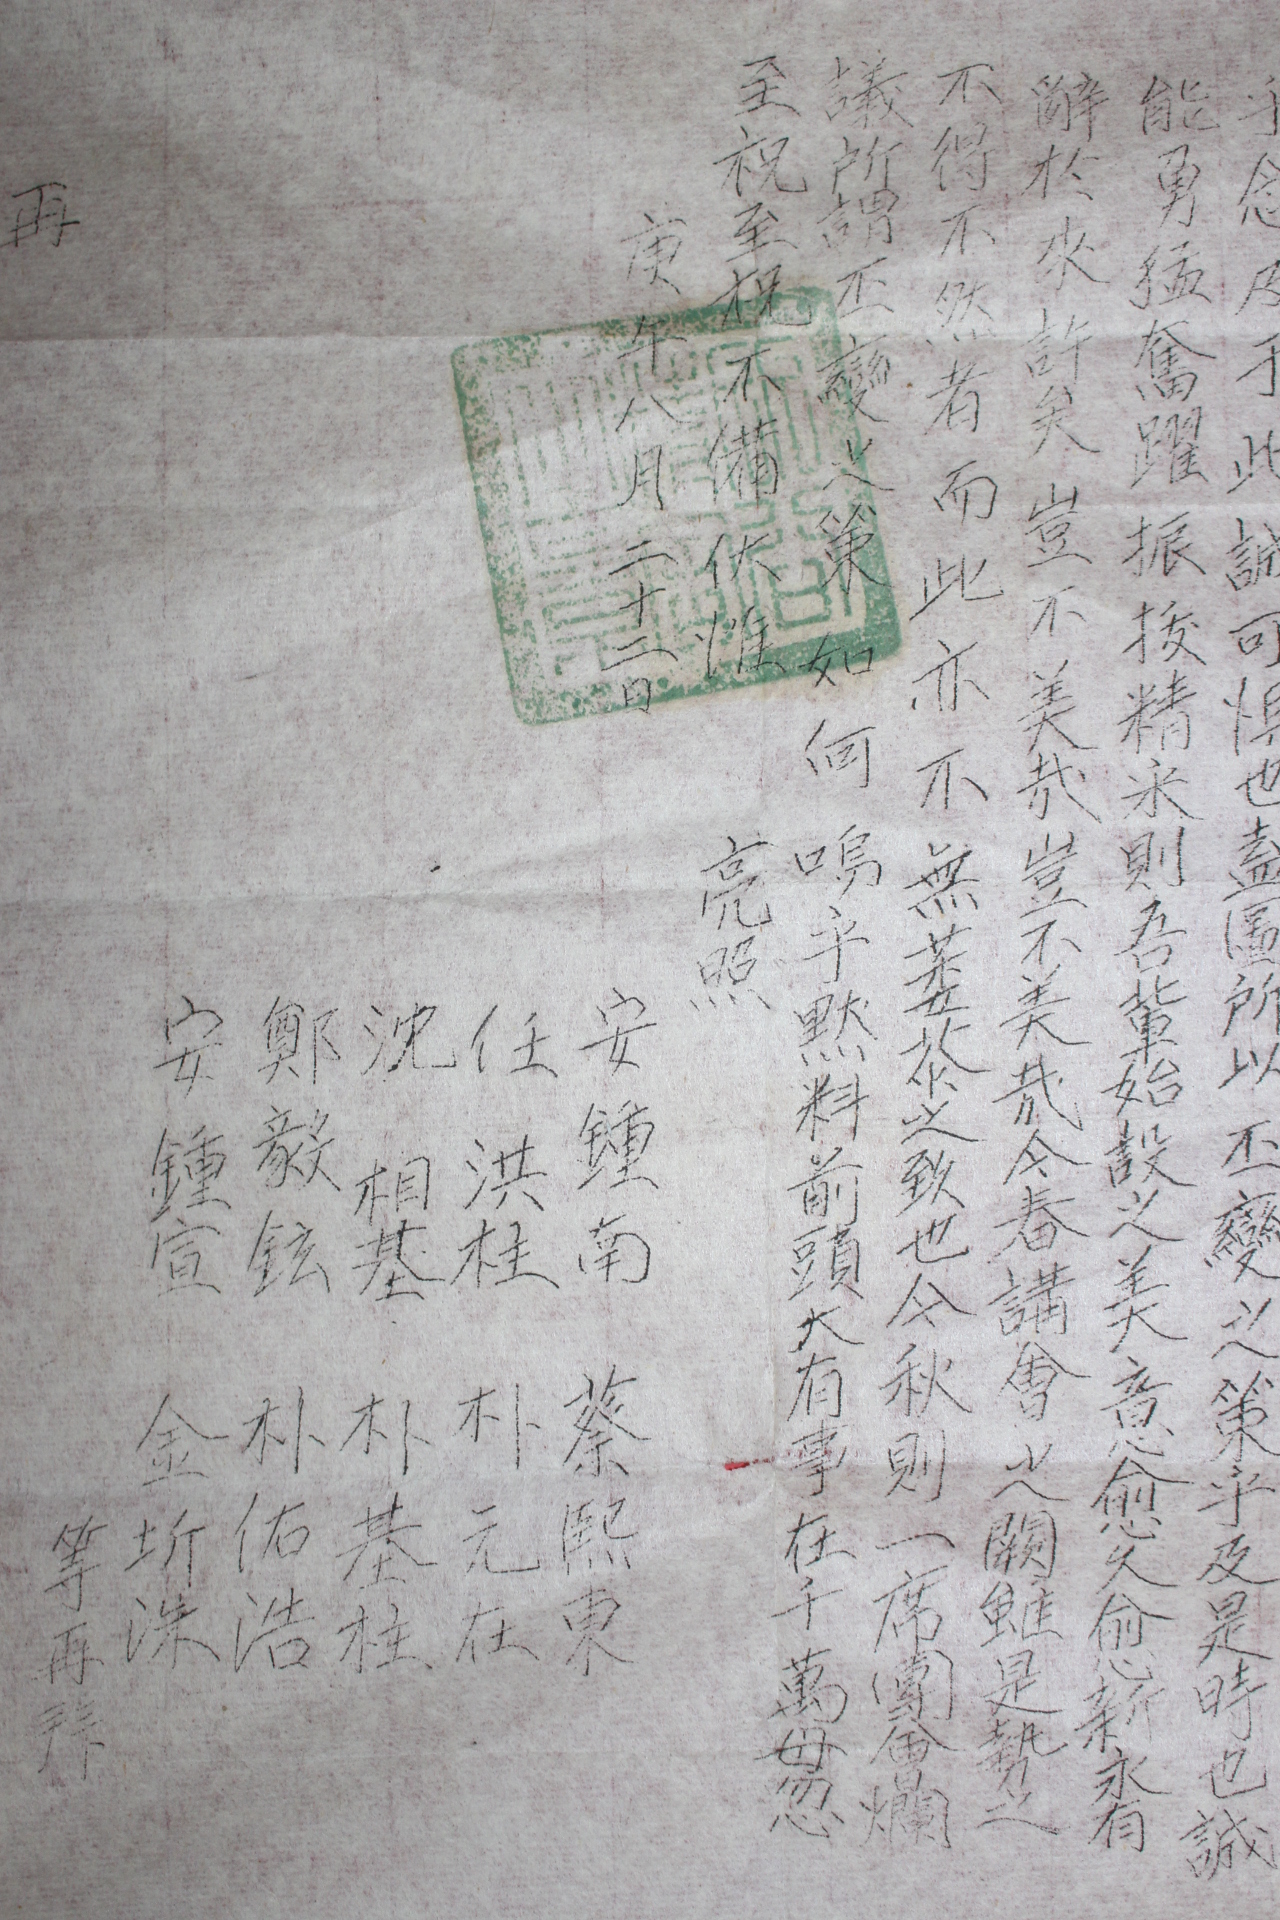 乎念及于此誠可惧也盍圖所以丕變之策乎及是時也誠
能勇猛奮躍振拨精采則吾輩始設之美意愈久愈新永有
辭於來許矣豈不美哉豈不美哉今春講會之闕雖是勢之
不得不然者而此亦不無萎苶之致也今秋則一席團會爛
議所謂丕變之策如何嗚乎默料前頭大有事在千萬毋忽
至祝至祝不備伏惟
亮照
庚午八月二十二日
安鍾南 蔡熙東
任洪柱 朴元在
沈相基 朴基柱
鄭毅鉉 朴佑浩
安鍾宣 金圻洙
等再拜
再